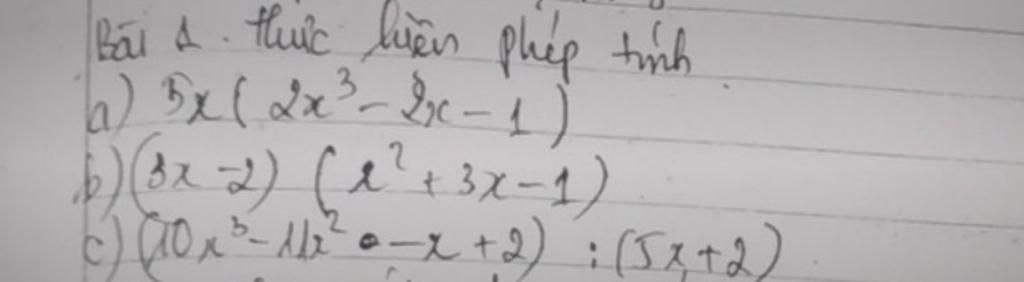 Bài 1. Thực hiện phép tính
a) 5x( 2x³ - 2x - 1 )
b) (3x - 2) ( x² + 3x - 1 )
c) (10x³ - 11x² - x + 2) : (5x + 2)